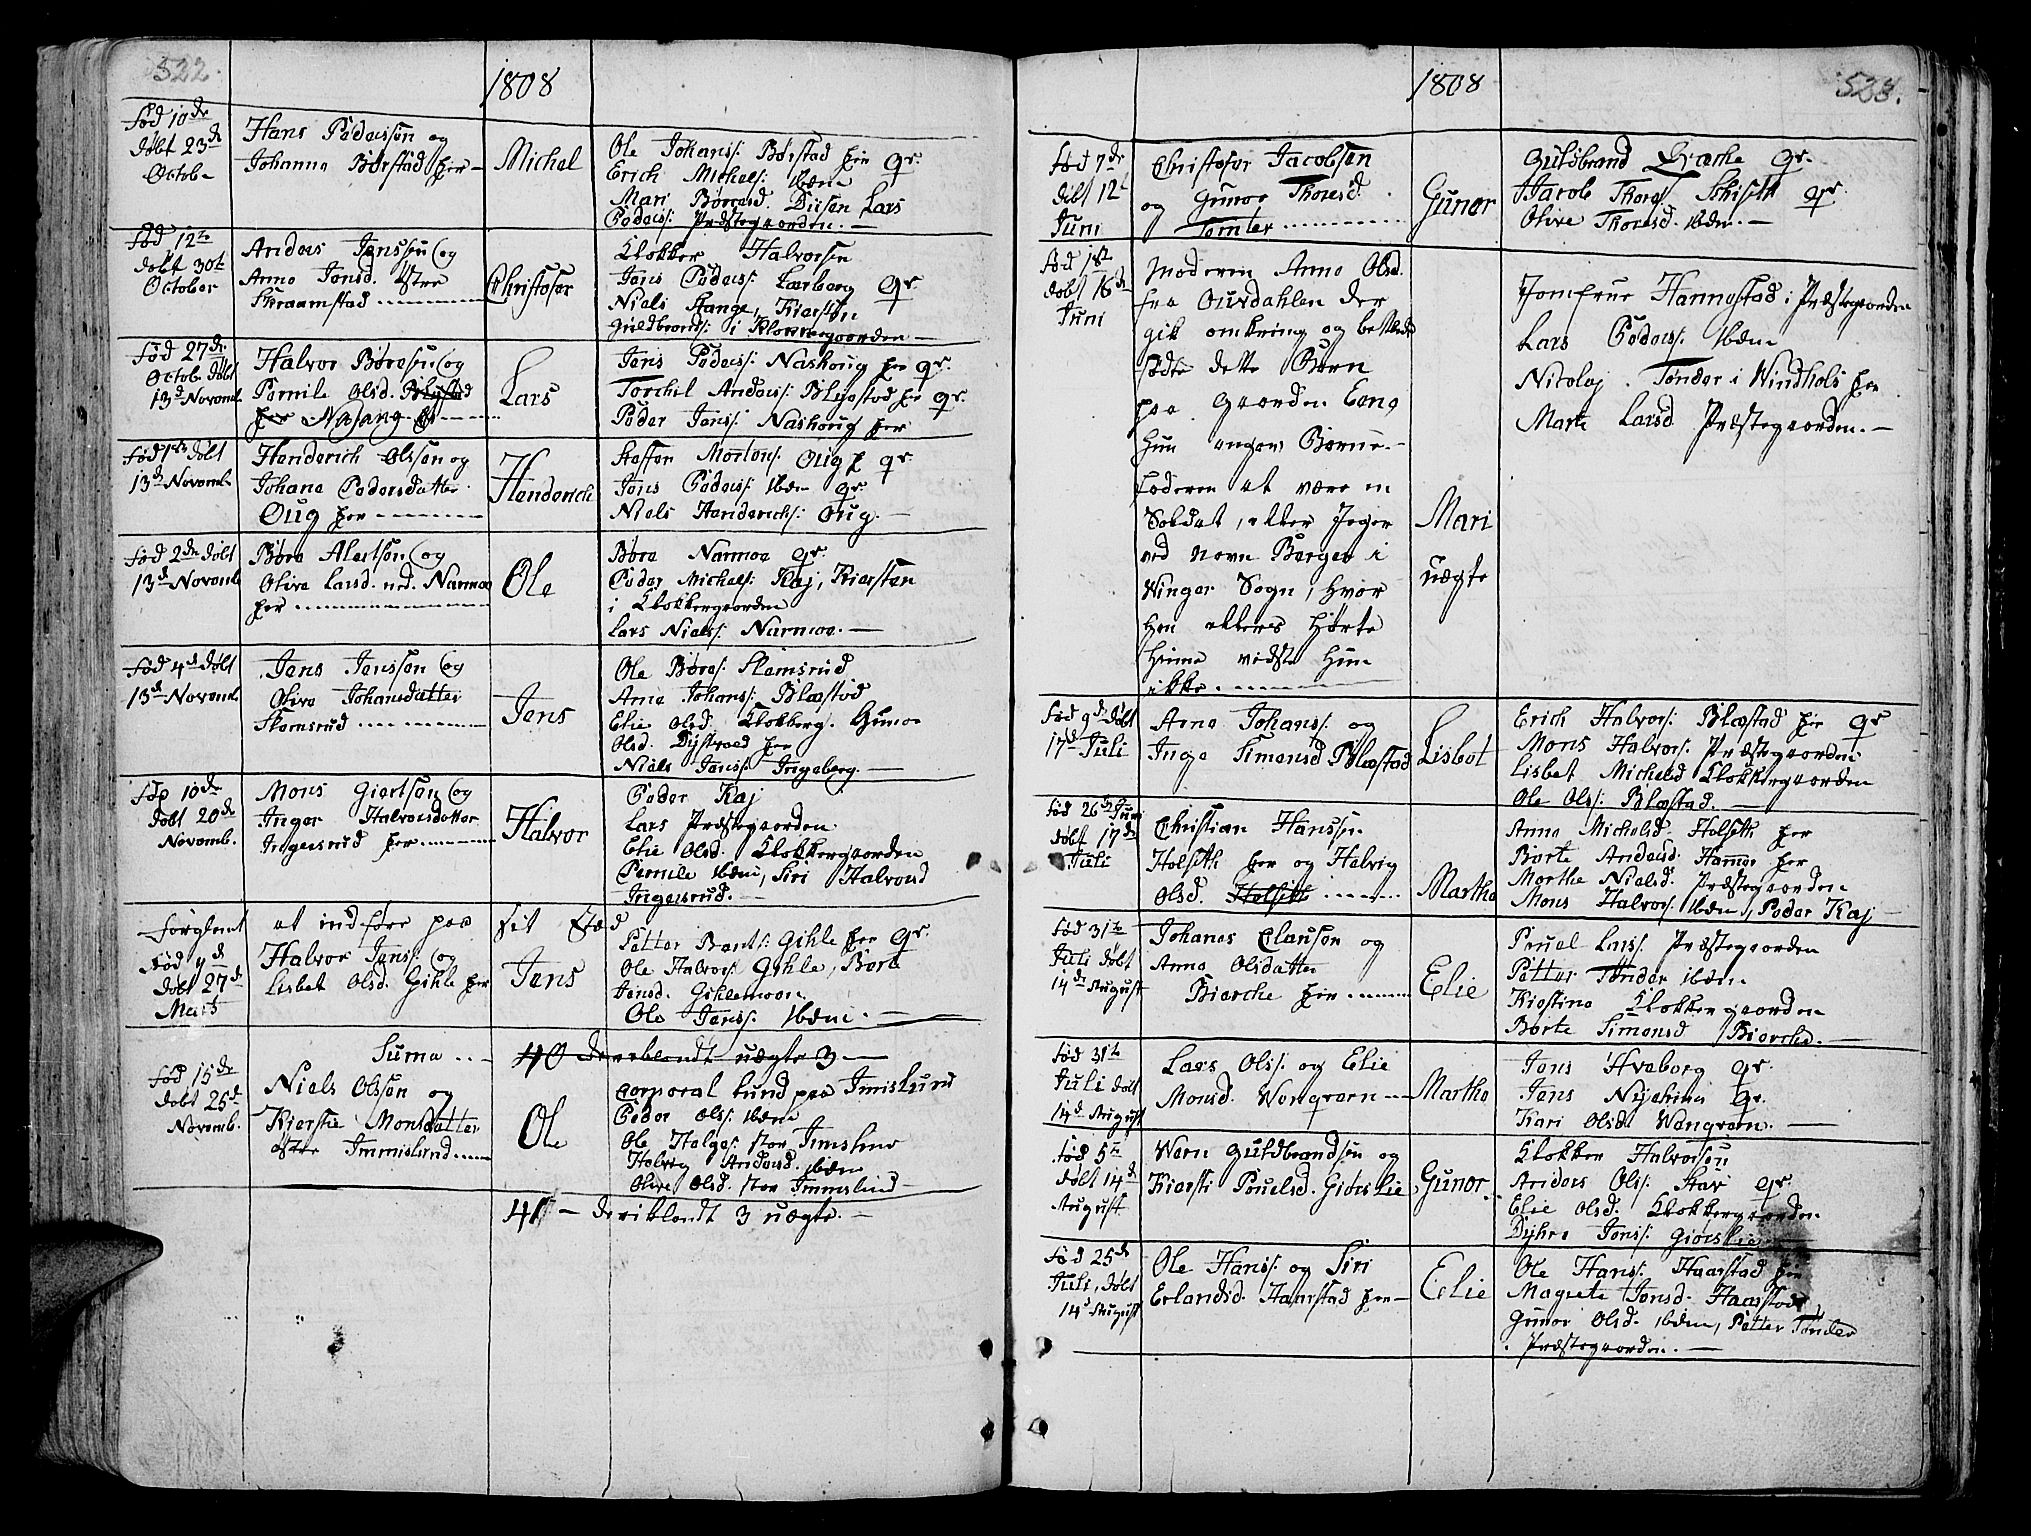 522.
1808
Fød 10de
døbt 23de
Octob.
Hans Pedersen og
Johanna Børstad her
Michel
Ole Johans: Børstad her gr.
Erich Michels: ibdm
Mari Børresd. Diisen Lars
Peders: Præstegaarden.
Fød 12te
døbt 30te
October
Anders Jenssen og
Anne Jensd. østre
Skraamstad
Christofer
Klokker Halvorsen
Jens Peders: Lærberg gr
Niels Stange, Kiersten
Guldbrands: i Klokkergaarden
Fød 27de
Octob. døbt
13d Novemb.
Halvor Børresen og
Pernile Olsd. Blystad
her Nashoug
Lars
Jens Peders: Nashoug her gr.
Torchil Anders: Blæstad her gr.
Peder Jens: Nashoug her
Fød 1ste døbt
13d Novemb.
Henderich Olsson og
Johane Pedersdatter
Oug her
Henderich
Steffen Mortens: Oug h gr.
Jens Peders: ibdm gr
Niels Henderichs: Oug.
Fød 2den døbt
13d Novemb.
Børe Alertsøn og
Olive Larsd. ned. Narmoe
her
Ole
Børe Narmoe gr.
Peder Michels: Kaj, Kiersten
i Klokkergaarden
Lars Niels: Narmoe.
Fød 4d døbt
13d Novemb.
Jens Jenssøn og
Olive Johansdatter
Slemsrud
Jens
Ole Børes: Slemsrud
Arne Johans: Blæstad
Elie Olsd. Klokkerg. Gunor
Olsd. Dystvoed her
Niels Jens: Ingeberg.
Fød 10de
døbt 20de
Novemb.
Mons Giertsøn og
Inger Halvorsdatter
Ingersrud her
Halvor
Peder Kaj
Lars Præstegaarden
Elie Olsd. Klokkergaarden
Pernile ibdm, Siri Halvorsd
Ingersrud.
Forglemt at indføre paa sit Sted
Fød 4d
døbt 27de
Marts
Halvor Jens: og
Lisbet Olsd. Gihle her
Jens
Petter Bents: Gihle her gr.
Ole Halvors: Gihle, Borte
Jensd. Gihlemoen
Ole Jens: ibdm.
Suma
40 deriblandt uægte 3
Fød 15de
døbt 25d
Novemb.
Niels Olsson og
Kierstie Monsdatter
østre Immislund
Ole
Corporal Lund paa Imislund
Peder Ols: ibdm
Ole Helges: stor Imislund
Helvig Andersd. ibdm
Olive Olsd. stor Immslund
41 deriblandt 3 uægte.
1808
523.
Fød 7de
døbt 12t
Juni
Christofer Jacobsen
og Gunor Thoresd
Tomter
Gunor
Guldbrand Bræche gr.
Jacob Thores: Schiseth gr.
Olive Thoresd. ibdm
Fød 1st
døbt 16d
Juni
Moderen Anne Olsd.
fra Ourdahlen der
gik omkring og betlede
fødte dette Barn
paa Gaarden Eeng
hun angav Barne-
faderen at være en
Soldat, eller Jeger
ved navn Berger i
Winger Sogn, hvor
han ellers hørte
hiime vidste hun
ikke.
Mari
uægte
Jomfrue Hannestad i Præstegaarden
Lars Peders: ibdm
Nicolaj Tønder i Windhols her
Marte Larsd Præstegaarden.
Fød 9d døbt
17d Juli
Arne Johans: og
Inge Simensd Blæstad
Lisbet
Erich Halvors: Blæstad her gr
Mons Halvors: Præstegaarden
Lisbet Michelsd Klokkergaarden
Ole Ols: Blæstad.
Fød 26de Juni
døbt 17de
Juli
Christian Hanssen
Holseth her og Helvig
Olsd. Holseth
Marthe
Anne Michelsd. Holseth her
Borte Andersd. Hamge her
Marthe Nielsd. Præstegaarden
Mons Halvors: ibdm, Peder Kaj
Fød 31te
Juli døbt
14de August
Johanes Clausen og
Anne Olsdatter
Bierche her
Elie
Pouel Lars: Præstegaarden
Petter Tønder ibdm
Kiestine Klokkergaarden
Borte Simensd Bierche.
Fød 31te
Juli døbt
14d August
Lars Ols: og Elie
Monsd. Wangvarn
Marthe
Jens Hveberg gr.
Jens Nyehuus gr.
Kari Olsd. Wangvarn.
Fød 5te
døbt 14d
August
Wern Guldbrandsen og
Kiersti Pouelsd. Giørslie
Gunor
Klokker Halvorsen
Anders Ols: Stav gr.
Elie Olsd. Klokkergaarden
Dyhre Jens: Giørslie
Fød 25de
Juli, døbt
14d August
Ole Hans: og Siri
Erlandsd. Haarstad her
Elie
Ole Hans: Haarstad her
Magrete Jensd. Haarstad
Gunor Olsd. ibdm, Petter Tønder
Præstegaarden.